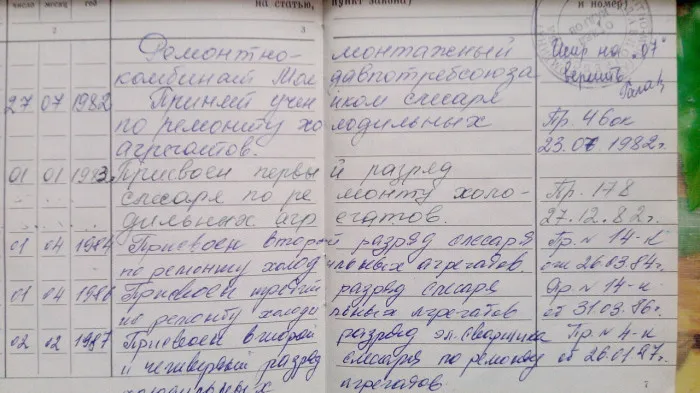 число месяц год на статью, пункт закона) и номер)
2 3
Ремонтно- монтажный Испр на "07"
комбинат Молдавпотребсоюза верить
27 07 1982 Принят учеником слесаря
по ремонту холодильных Пр. 46ок
агрегатов. 23.07 1982г.
01 01 1983 Присвоен первый разряд
слесаря по ремонту холо- Пр. 178
дильных агрегатов. 27.12.82г.
01 04 1984 Присвоен второй разряд слесаря Пр. N 14-к
по ремонту холодильных агрегатов. от 26.03.84г.
01 04 1986 Присвоен третий разряд слесаря Пр. N 14-к
по ремонту холодильных агрегатов от 31.03.86г.
02 02 1987 Присвоен второй разряд эл. сварщика Пр. N 4-к
и четвертый разряд слесаря по ремонту от 26.01.87г.
холодильных агрегатов.
7